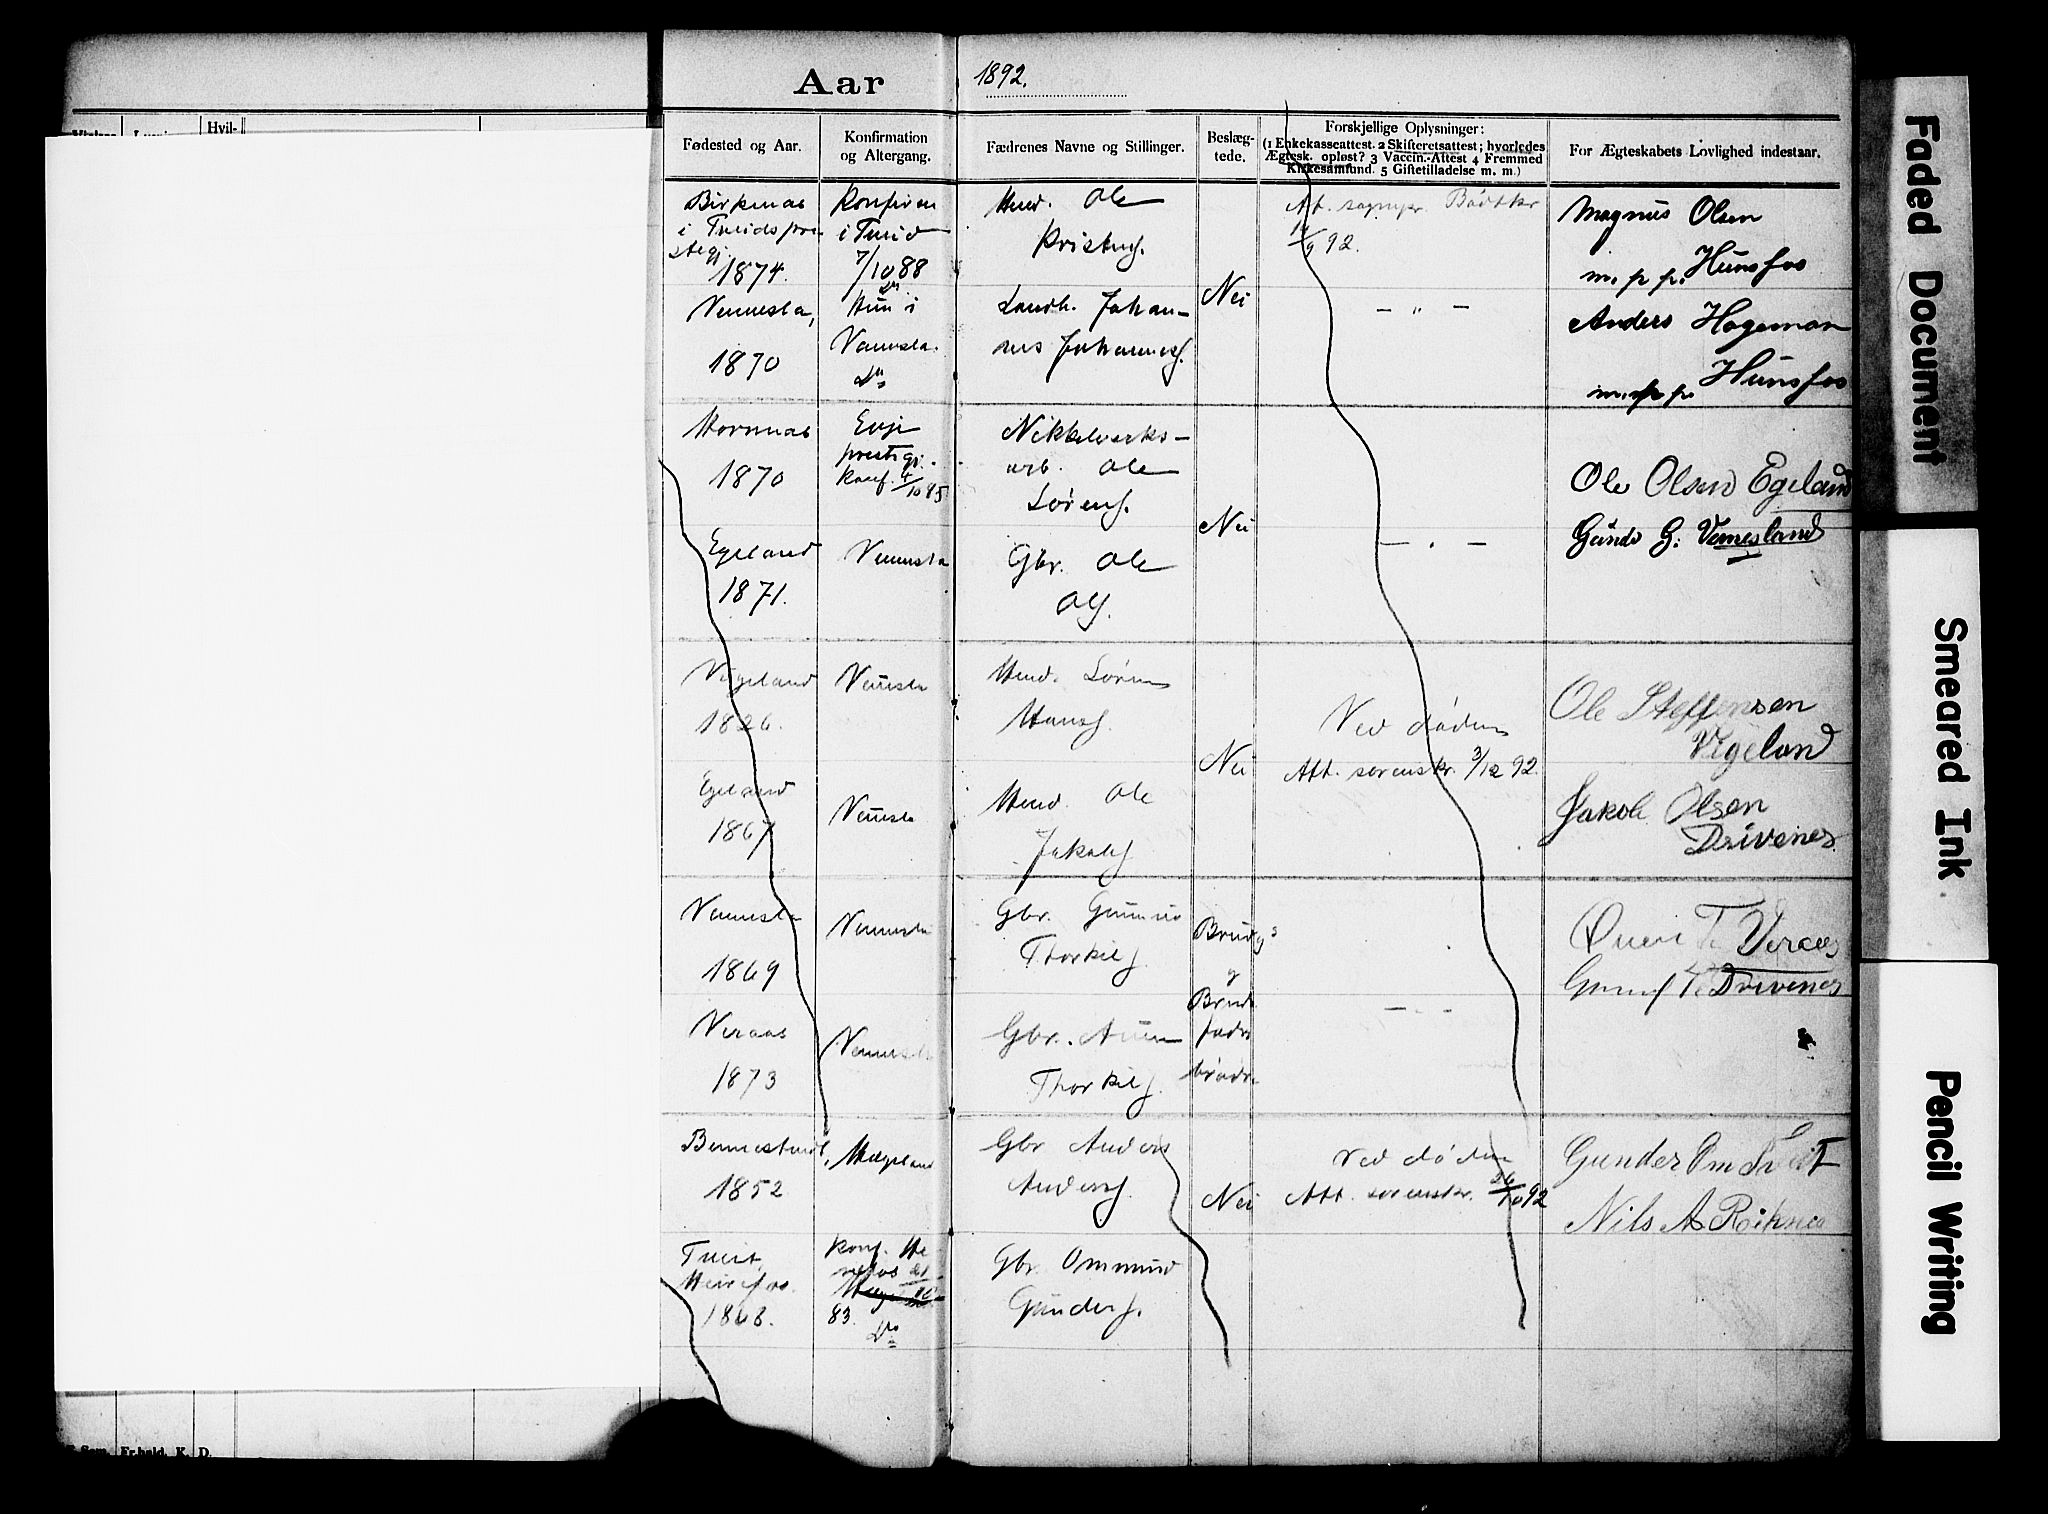 Aar 1892.
Hvil-
Fødested og Aar.
Konfirmation
og Altergang.
Fædrenes Navne og Stillinger.
Beslæg-
tede.
Forskjellige Oplysninger:
(1 Enkekasseattest. 2 Skifteretsattest; hvorledes
Ægtesk. opløst? 3 Vaccin.-Attest 4 Fremmed
Kirkesamfund. 5 Giftetilladelse m. m.)
For Ægteskabets Lovlighed indestaar.
Birkenas
i Tveids præ
stegj.
1874.
Konfirm
i Tveid
7/10 88
Ds
Huusd. Ole
Kristens.
Nei
Att. sognepr. Bödtker
92.
Magnus Olsen
m. p. p. Hunsfos
Vennesla,
1870
Hun i
Vennesla.
Ds
Landh. Johan-
nes Johanness.
- " -
Anders Hageman
m. p. p. Hunsfos
Hornnas
1870
Evje
prestgj.
Konf. 4/10 85
Nikkelverks-
arb. Ole
Sørens.
Nei
Ole Olsen Egeland
Egeland
1871.
Vennesla
Gbr. Ole
Ols.
- " -
Gunde G: Venesland
Vigeland
1826.
Vennesla
Huusd. Søren
Hans.
Nei
Ved döden
Att. sorenskr. 3/12 92.
Ole Steffensen
Vigeland
Egeland
1867
Vennesla
Huusd. Ole
Jakobs.
Jakob Olsen
Drivenes
Vennesla
1869
Vennesla
Gbr. Gunnuf
Thorkils.
Brudgs
g
Bruds
fadre
brödre
T. Veraas
Gunuf T. Drivenes
Veraas
1873
Vennesla
Gbr. Auen
Thorkils.
- " -
Bennestvedt,
1852
Hægeland
Gbr Anders
Anders.
Nei
Ved döden
Att. sorenskr. 26/10 92
Gunder Om Sveit
Nils A Roihnes
Tveit,
Heirefos.
1868.
Konf. He
refos 21
Hæge 10
83. Ds
Gbr. Ommund
Gunders.
Fr.hald. K. D.
Faded Document
Smeared Ink
Pencil Writing